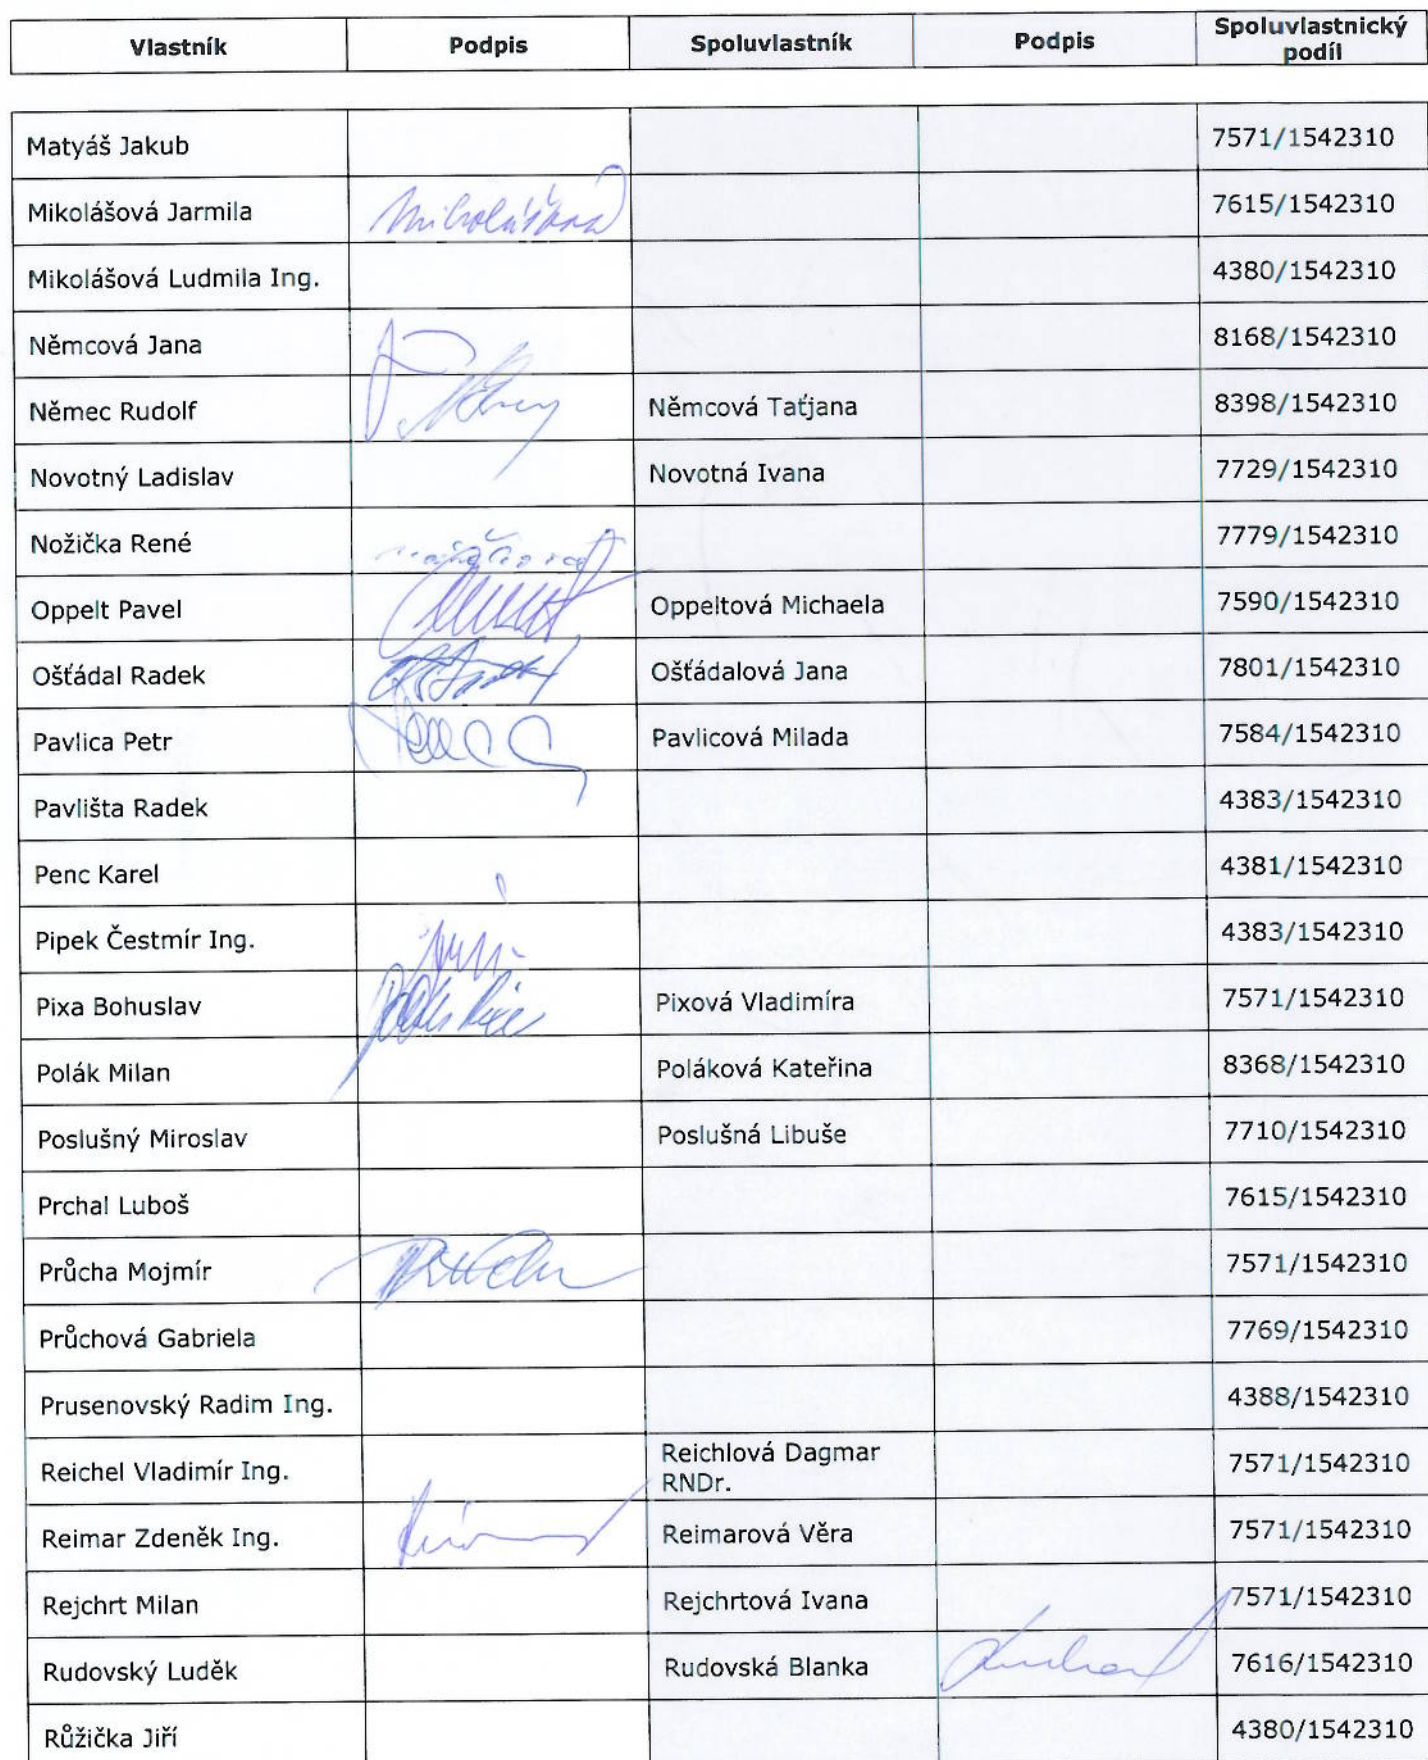 Vlastník Podpis Spoluvlastník Podpis Spoluvlastnický podíl
Matyáš Jakub 7571/1542310
Mikolášová Jarmila Mikolášová 7615/1542310
Mikolášová Ludmila Ing. 4380/1542310
Němcová Jana 8168/1542310
Němec Rudolf Němcová Taťjana 8398/1542310
Novotný Ladislav Novotná Ivana 7729/1542310
Nožička René 7779/1542310
Oppelt Pavel Oppeltová Michaela 7590/1542310
Ošťádal Radek Ošťádalová Jana 7801/1542310
Pavlica Petr Pavlicová Milada 7584/1542310
Pavlišta Radek 4383/1542310
Penc Karel 4381/1542310
Pipek Čestmír Ing. 4383/1542310
Pixa Bohuslav Pixová Vladimíra 7571/1542310
Polák Milan Poláková Kateřina 8368/1542310
Poslušný Miroslav Poslušná Libuše 7710/1542310
Prchal Luboš 7615/1542310
Průcha Mojmír 7571/1542310
Průchová Gabriela 7769/1542310
Prusenovský Radim Ing. 4388/1542310
Reichel Vladimír Ing. Reichlová Dagmar RNDr. 7571/1542310
Reimar Zdeněk Ing. Reimarová Věra 7571/1542310
Rejchrt Milan Rejchrtová Ivana 7571/1542310
Rudovský Luděk Rudovská Blanka 7616/1542310
Růžička Jiří 4380/1542310